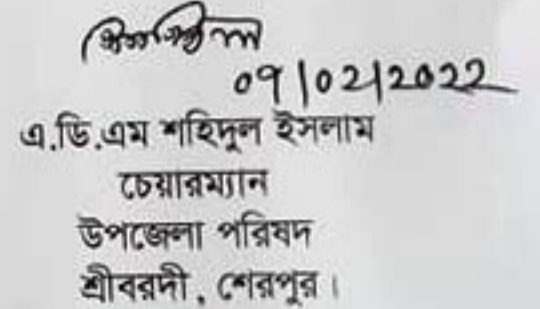 ০৭/০২/২০২২
এ.ডি.এম শহিদুল ইসলাম
চেয়ারম্যান
উপজেলা পরিষদ
শ্রীবরদী, শেরপুর।